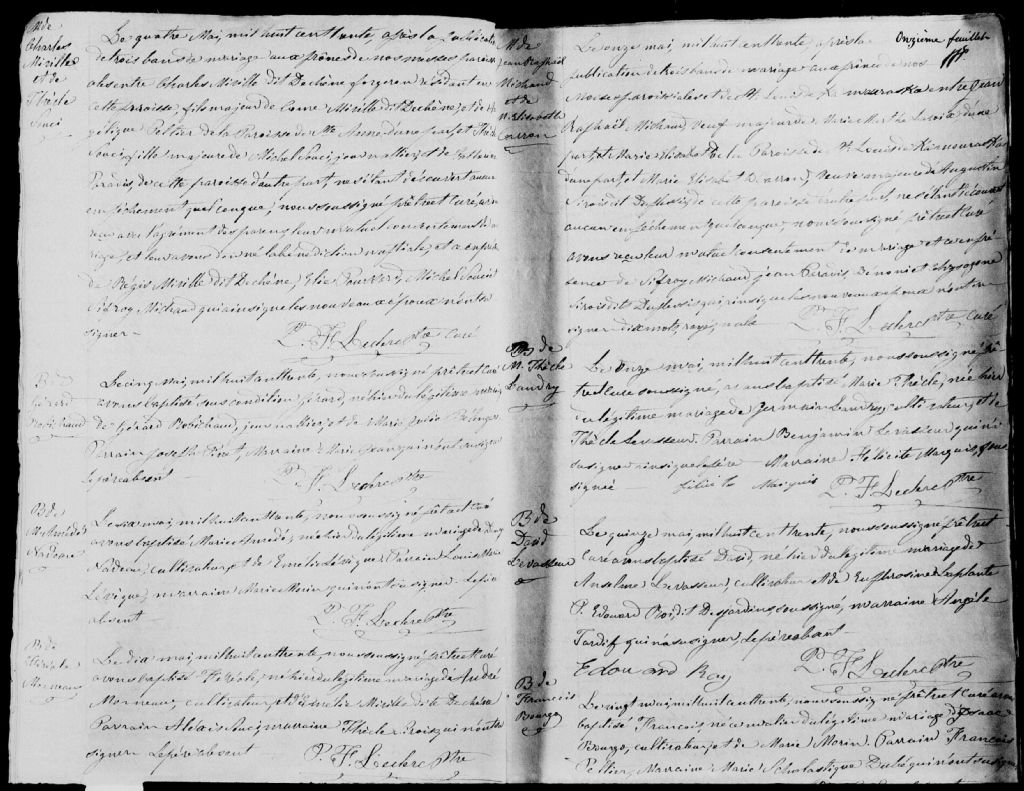 M de
Charles
Miville
et de
Thècle
Souci
Le quatre Mai, mil huit cent trente, après la publication
de trois bans de mariage aux prônes de nos messes paroissiales
entre Charles Miville dit Dechêne forgeron résidant en
cette paroisse fils majeur de Miville dit Dechêne, et de
Peltier de la Paroisse de Ste Anne d'une part, et Thècle
Souci, fille majeure de Michel Souci, journalier, et de
Paradis, de cette paroisse d'autre part, ne s'étant découvert aucun
empêchement quelconque; nous soussigné prêtre et curé, avons
reçu avec l'agrément des parens leur mutuel consentement de
mariage, et leur avons donné la bénédiction nuptiale, et ce en présence
de Régis Miville dit Dechêne, Elie Michel Souci
Sifroy Michaud qui ainsi que les nouveaux époux n'ont su
signer —
P. F. Leclerc Ptre Curé
B de
Gérard
Robichaud
Le cinq Mai, mil huit cent trente, nous soussigné prêtre curé
avons baptisé sous condition Gérard, né hier du légitime mariage
de Gérard Robichaud, journalier, et de Marie
Parrain Joseph Marraine Marie qui n'ont su signer
le père absent
P. F. Leclerc Ptre
B de
M. Amédé
Nadeau
Le six mai, mil huit cent trente, nous soussigné prêtre et curé
avons baptisé Marie Amédé, née hier du légitime mariage de
Nadeau, cultivateur, et de Emelie Lévêque Parrain Louis Marie
Lévêque, marraine Marie Morin qui n'ont su signer. Le père
absent —
P. F. Leclerc Ptre
B de
Thècle
Morneau
Le dix mai, mil huit cent trente, nous soussigné, prêtre et curé
avons baptisé Thècle, née hier du légitime mariage de André
Morneau, cultivateur, et d'Emelie Miville dit Dechêne
Parrain Alexis Souci, marraine Thècle Srois qui n'ont su
signer Le père absent
P. F. Leclerc Ptre
Onzième feuillet
M de
Jean Raphaël
Michaud
et de
M. Elisabeth
Caron
Le onze mai, mil huit cent trente, après la
publication de trois bans de mariage aux prônes de nos
Messes paroissiales et de St. Louis de Kamouraska entre Jean
Raphaël Michaud, veuf majeur de Marie Marthe Lavoie d'une
part, et Marie Elisabeth de la Paroisse de St. Louis de Kamouraska
d'une part, et Marie Elisabeth Caron, veuve majeure de Augustin
Sirois dit Duplessis de cette paroisse d'autre part, ne s'étant découvert
aucun empêchement quelconque, nous soussigné prêtre et curé
avons reçu leur mutuel consentement de mariage et ce en présence
de Sifroy Michaud, Jean Paradis, Benoni et Chrysogone
Sirois dit Duplessis qui, ainsi que les nouveaux époux n'ont su
signer. dix mots rayés nuls
P. F. Leclerc Ptre Curé
B de
M. Thècle
Landry
Le Onze mai, mil huit cent trente, nous soussigné prêtre
et curé soussigné, avons baptisé Marie Thècle, née hier
du légitime mariage de Germain Landry, cultivateur, et de
Thècle Levasseur. Parrain Benjamin Levasseur qui n'a
su signer ainsi que le père — Marraine Félicité Marquis, sous
signée — félicité Marquis
P. F. Leclerc Ptre
B de
David
Levasseur
Le quinze mai, mil huit cent trente, nous soussigné prêtre et
curé avons baptisé David, né hier du légitime mariage de
Anselme Levasseur, cultivateur et de Euphrosine Laplante
P. Edouard Roi, dit Desjardins soussigné, marraine Angèle
Tardif qui n'a su signer, le père absent —
Edouard Roy
P. F. Leclerc Ptre
B de
François
Bourgo
Le vingt mai, mil huit cent trente, nous soussigné prêtre et curé avons
baptisé François né ce matin du légitime mariage d'Isaac
Bourgo, cultivateur, et de Marie Morin. Parrain François
Peltier, Marraine Marie Scholastique Dubé qui n'ont su signer